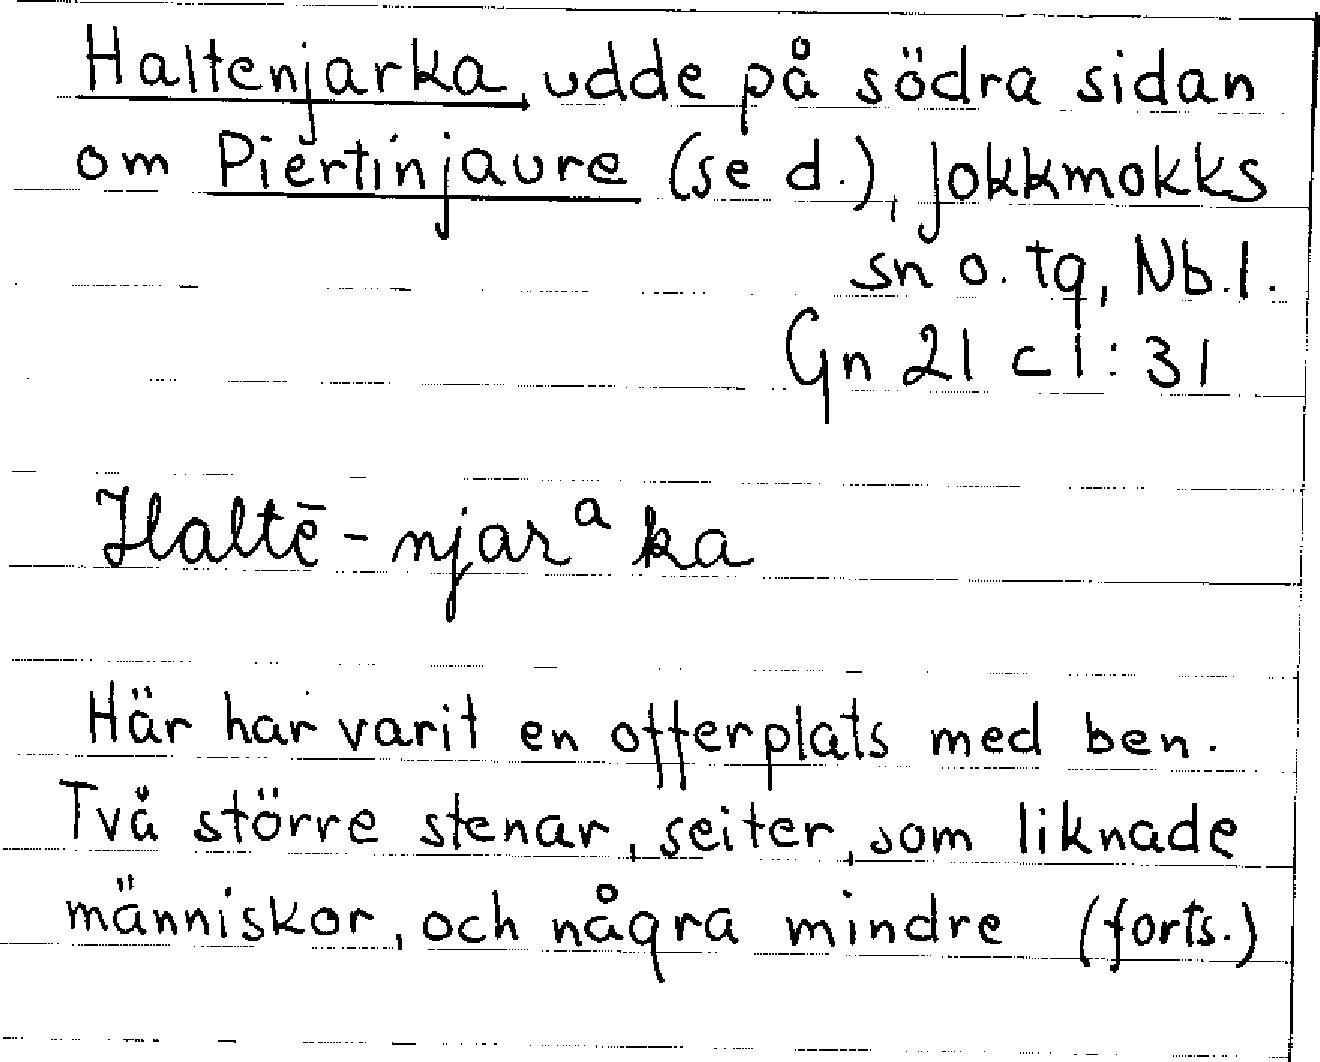 Haltenjarka, udde på södra sidan
om Piertinjaure (se d.), Jokkmokks
sn o. tg, Nb.l.
Gn 21 c 1:31
Haltē-njarᵃka
Här har varit en offerplats med ben.
Två större stenar, seiter, som liknade
människor, och några mindre (forts.)